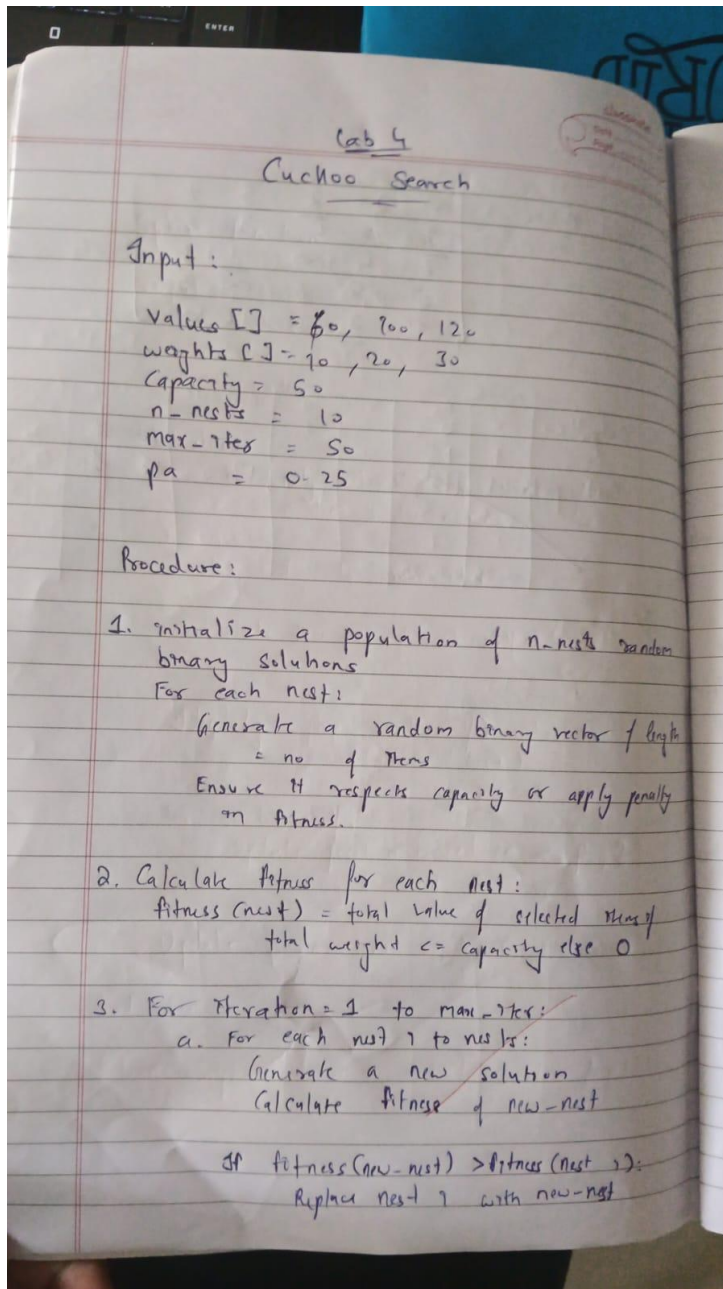 0
ENTER
classmate
Date
Page
Lab 4
Cuckoo Search
Input :
values [] = 60, 100, 120
weights [] = 10, 20, 30
Capacity = 50
n_nests = 10
max_iter = 50
pa = 0.25
Procedure :
1. initialize a population of n_nests random
binary solutions
For each nest :
Generate a random binary vector of length
= no of items
Ensure it respects capacity or apply penalty
on fitness.
2. Calculate fitness for each nest :
fitness (nest) = total value of selected items if
total weight <= capacity else 0
3. For iteration = 1 to max_iter :
a. For each nest i to nests :
Generate a new solution
Calculate fitness of new-nest
If fitness (new-nest) > fitness (nest i) :
Replace nest i with new-nest